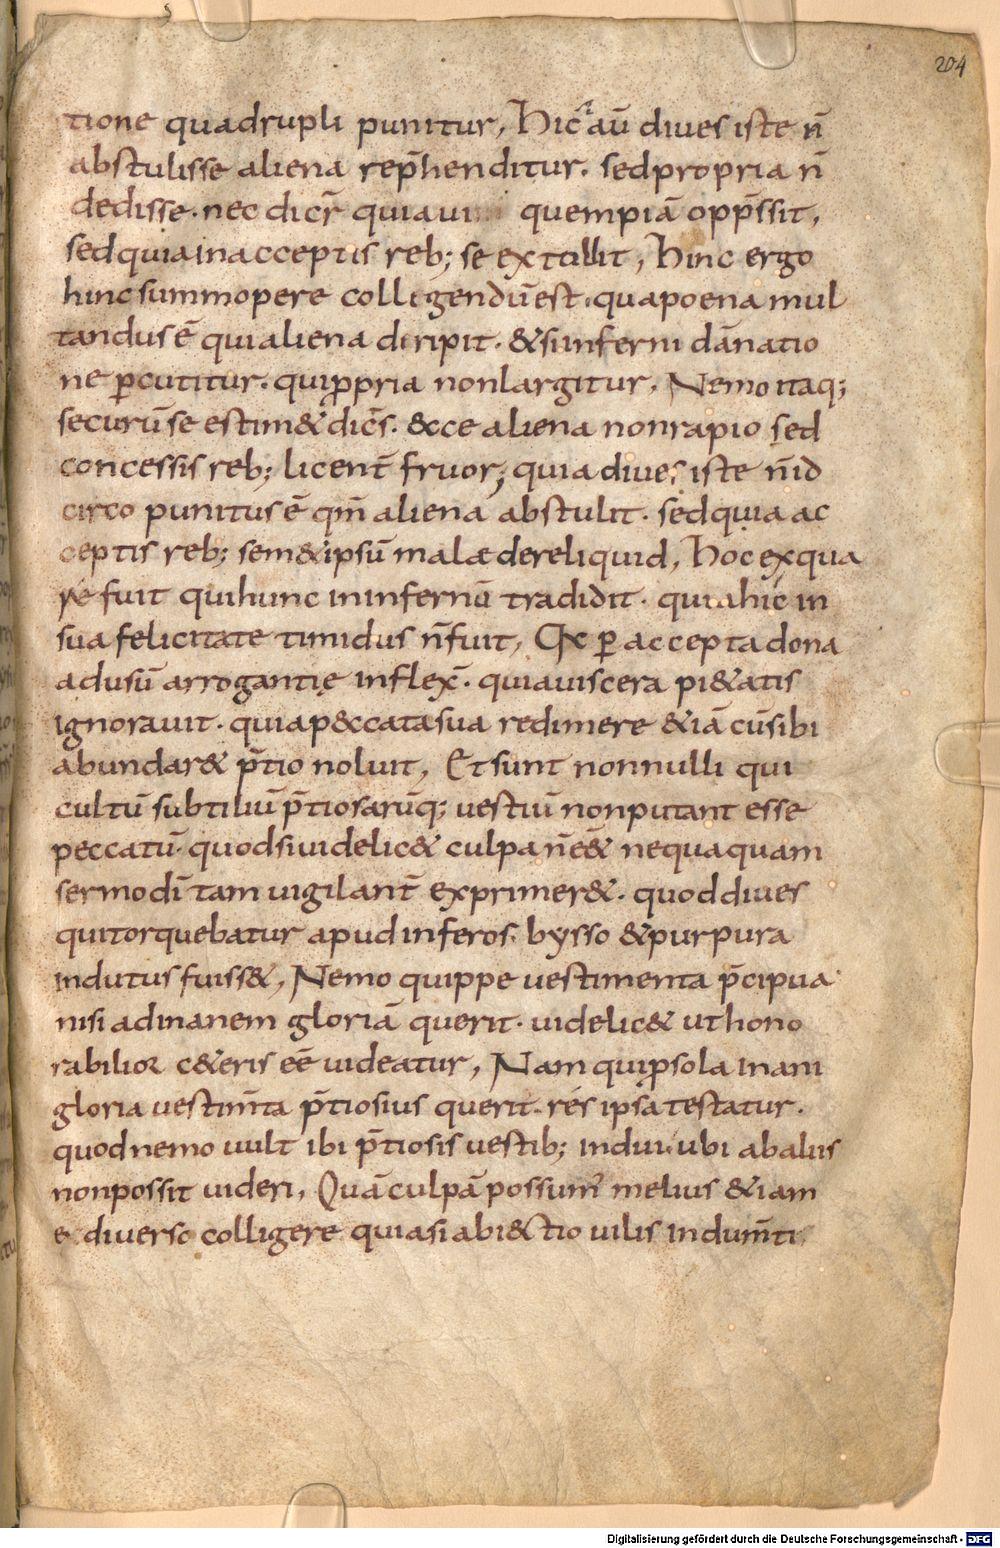 204
tione quadrupli punitur, Hic aū dives iste n̄
abstulisse aliena rep̄henditur. sed propria n̄
dedisse. nec dicr̄ quia vi quempiā opp̄ssit,
sed quia in acceptis reb; se extulit, Hinc ergo
hinc summopere colligendū est. qua poena mul
tandus ē qui aliena diripit. & si inferni dānatio
ne ꝑcutitur. qui ꝓpria non largitur, Nemo itaq;
securū se estim& dic̄s. &cce aliena non rapio sed
concessis reb; licent̄ fruor; quia dives iste n̄ id
circo punitus ē qm̄ aliena abstulit. sed quia ac
ceptis reb; sem&ipsū malæ dereliquid, Hoc ex qua
re fuit qui hunc in infernū tradidit. quia hic in
sua felicitate timidus n̄ fuit, Qx ꝑ accepta dona
ad usū arrogantię inflex̄. quia viscera pi&atis
ignoravit. quia p&ccata sua redimere &iā cū sibi
abundar& p̄tio noluit, Et sunt nonnulli qui
cultū subtiliū p̄tiosarūq; vestiū non putant esse
peccatū. quod si videlic& culpa n̄ e&̄ nequaquam
sermo dī tam vigilant̄ exprimer&. quod dives
qui torquebatur apud inferos. bysso & purpura
indutus fuiss&, Nemo quippe vestimenta p̄cipua
nisi ad inanem gloriā querit. videlic& ut hono
rabilior c&eris eē videatur, Nam qui ꝓ sola inani
gloria vestim̄ta p̄tiosius querit. res ipsa testatur.
quod nemo vult ibi p̄tiosis vestib; indui. ubi ab aliis
non possit videri, Quā culpā possum' melius &iam
e diverso colligere quia si abiectio vilis indum̄ti
Digitalisierung gefördert durch die Deutsche Forschungsgemeinschaft - DFG